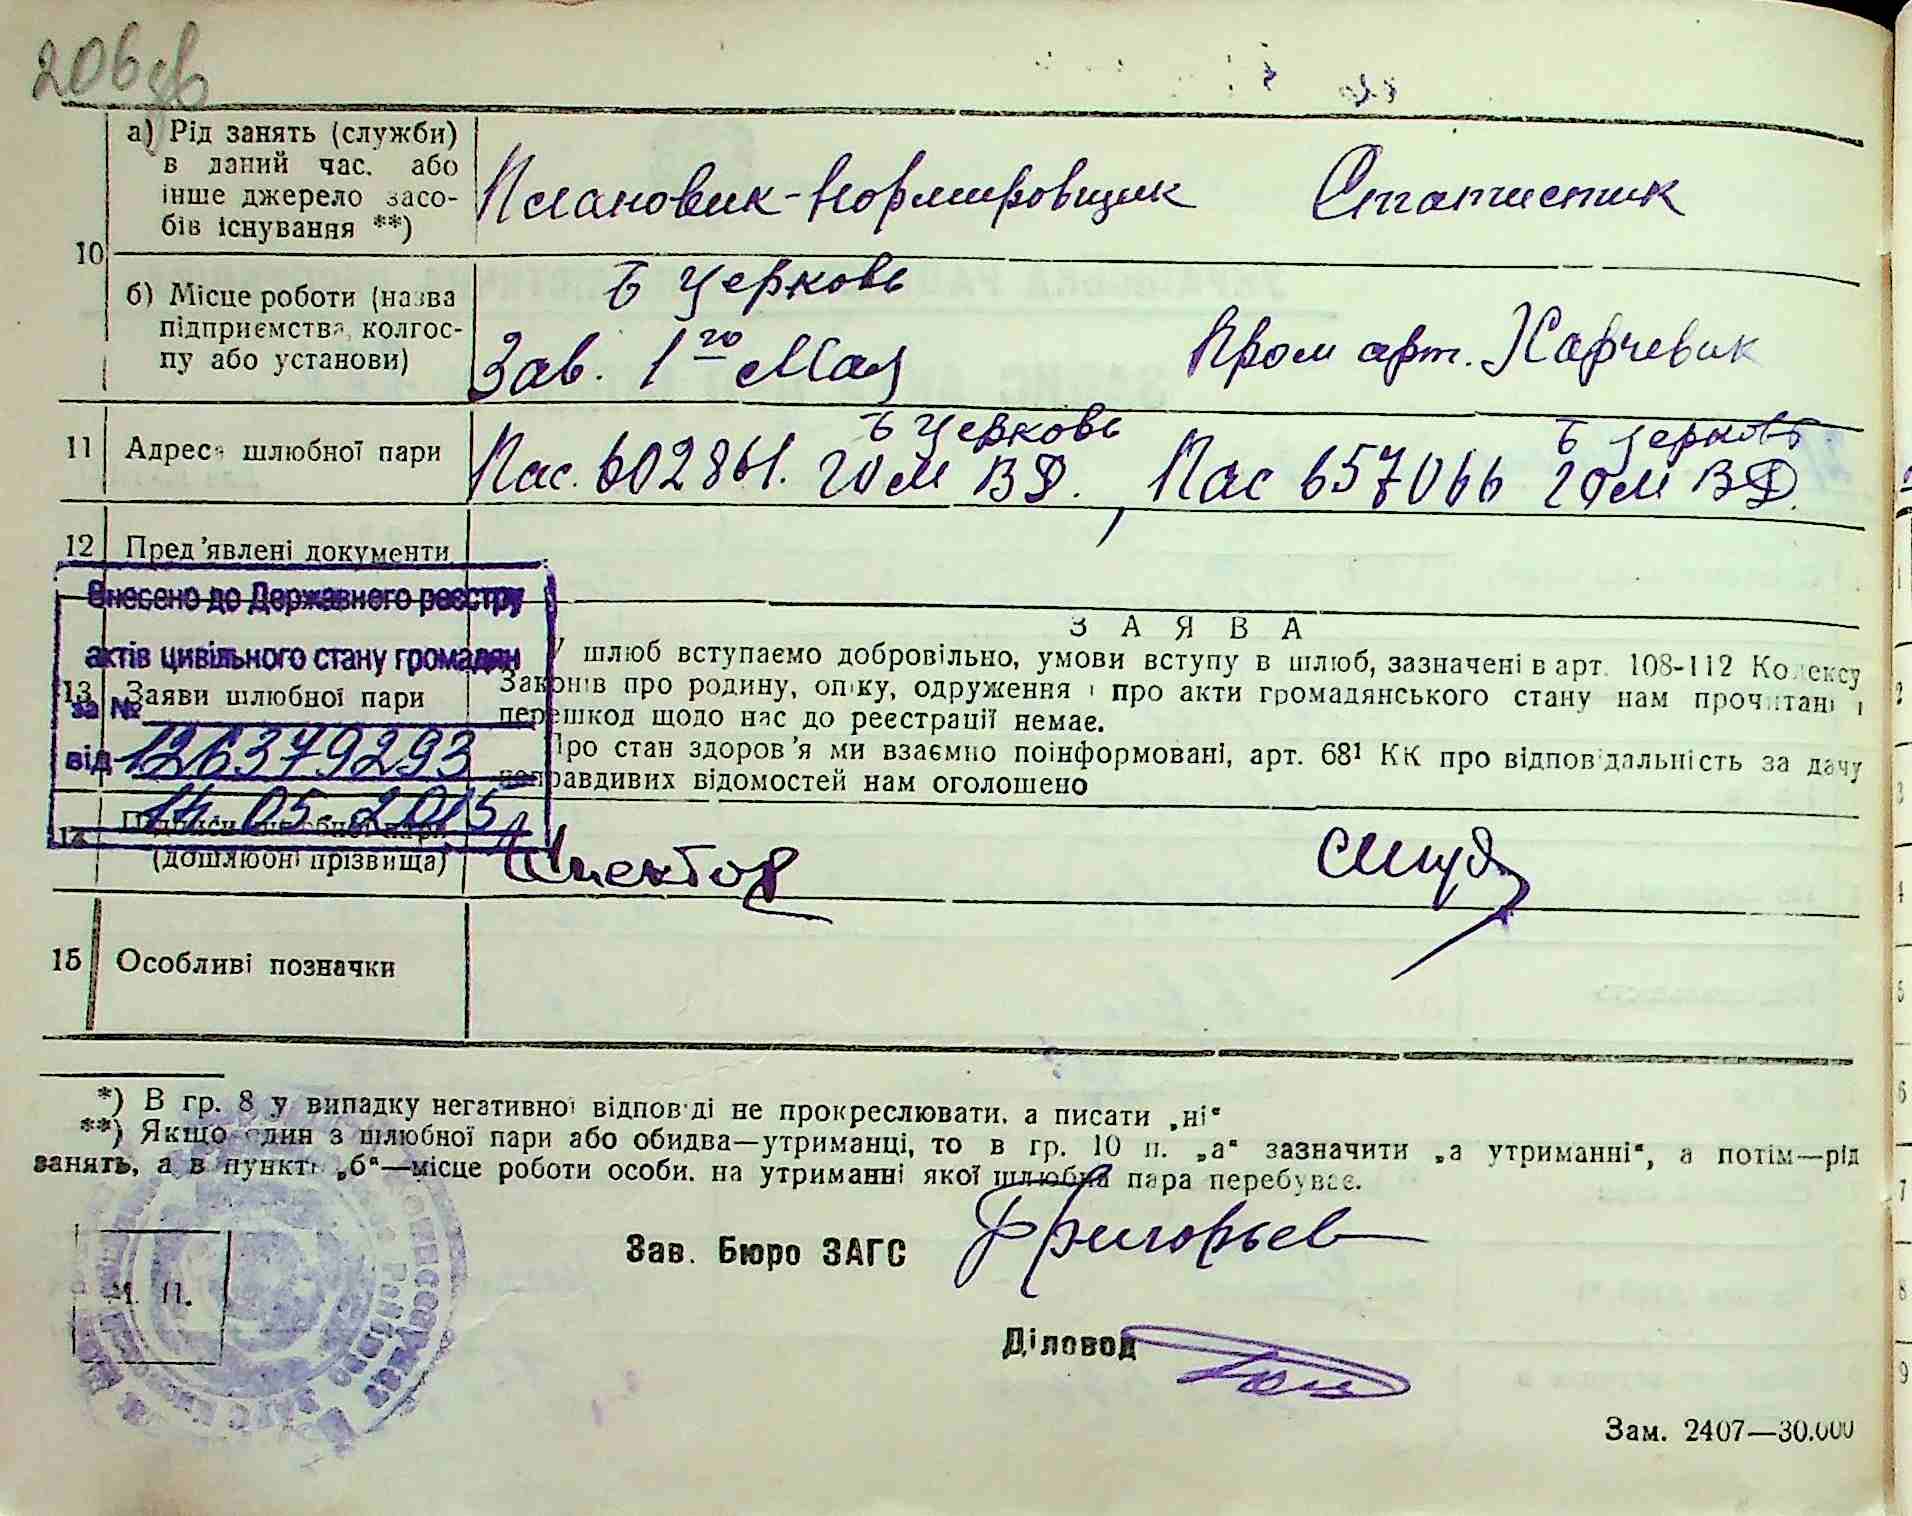 206 зв
а) Рід занять (служби)
в даний час. або
інше джерело засо-
бів існування **)
Плановик-Нормировщик
Статистик
10
б) Місце роботи (назва
підприємства, колгос-
пу або установи)
Б Церковь
Зав. 1го Мая
Пром арт. Харчевик
11
Адреса шлюбної пари
Б Церковь
Пас. 602861. ГОМ ВД.,
Б Церковь
Пас 657066 ГОМ ВД.
12
Пред'явлені документи
Внесено до Державного реєстру
актів цивільного стану громадян
за №
від 126379293
14. 05. 2015
З А Я В А
13
Заяви шлюбної пари
У шлюб вступаємо добровільно, умови вступу в шлюб, зазначені в арт. 108-112 Кодексу
Законів про родину, опіку, одруження і про акти громадянського стану нам прочитані і
перешкод щодо нас до реєстрації немає.
Про стан здоров'я ми взаємно поінформовані, арт. 68¹ КК про відповідальність за дачу
неправдивих відомостей нам оголошено
14
Підписи шлюбної пари
(дошлюбні прізвища)
Спектор
15
Особливі позначки
*) В гр. 8 у випадку негативної відповіді не прокреслювати. а писати „ні“
**) Якщо один з шлюбної пари або обидва—утриманці, то в гр. 10 п. „а“ зазначити „а утриманні“, а потім—рід
занять, а в пункті „б“—місце роботи особи. на утриманні якої шлюбна пара перебуває.
Зав. Бюро ЗАГС
Григорьев
М. П.
Діловод
Зам. 2407—30.000